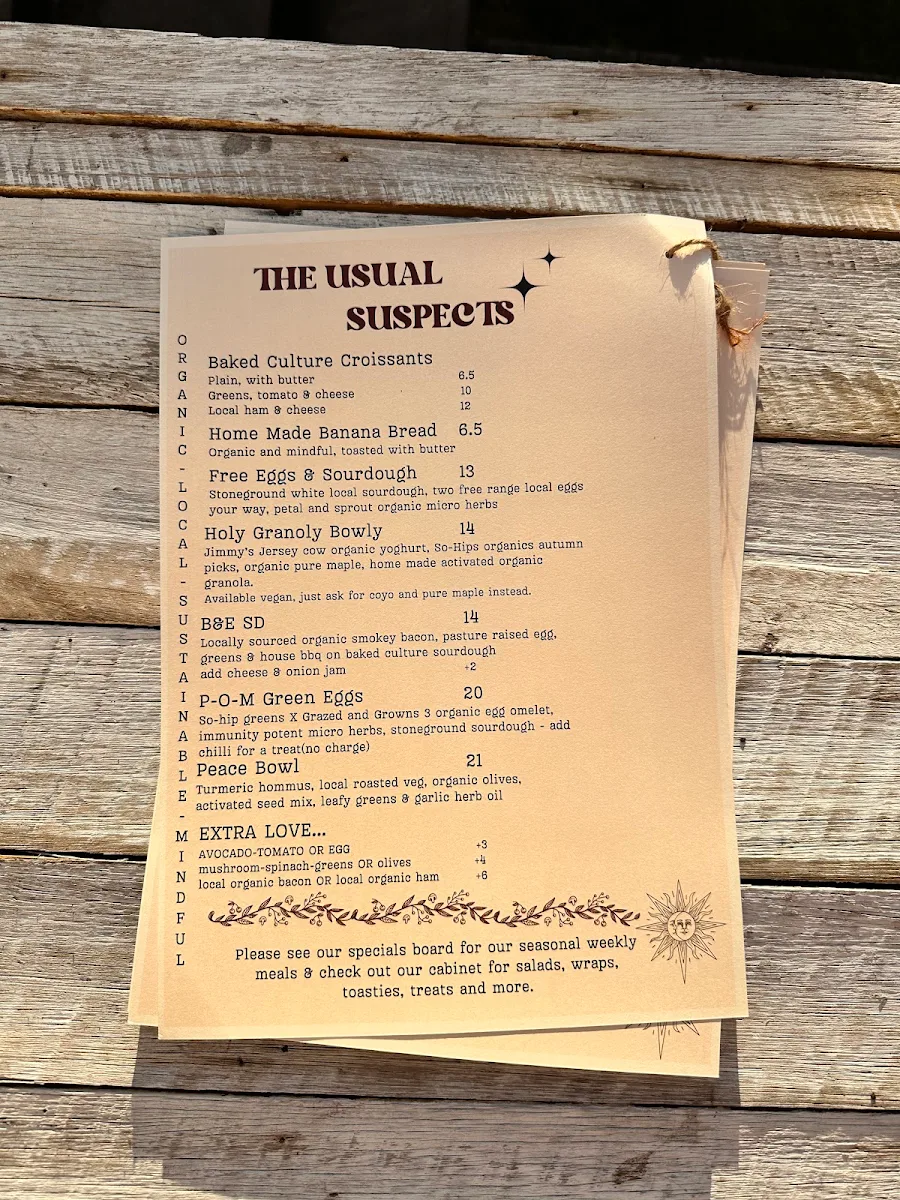 THE USUAL
SUSPECTS
ORGANIC-LOCAL-SUSTAINABLE-MINDFUL
Baked Culture Croissants
Plain, with butter 6.5
Greens, tomato & cheese 10
Local ham & cheese 12
Home Made Banana Bread 6.5
Organic and mindful, toasted with butter
Free Eggs & Sourdough 13
Stoneground white local sourdough, two free range local eggs
your way, petal and sprout organic micro herbs
Holy Granoly Bowly 14
Jimmy's Jersey cow organic yoghurt, So-Hips organics autumn
picks, organic pure maple, home made activated organic
granola.
Available vegan, just ask for coyo and pure maple instead.
B&E SD 14
Locally sourced organic smokey bacon, pasture raised egg,
greens & house bbq on baked culture sourdough
add cheese & onion jam +2
P-O-M Green Eggs 20
So-hip greens X Grazed and Growns 3 organic egg omelet,
immunity potent micro herbs, stoneground sourdough - add
chilli for a treat(no charge)
Peace Bowl 21
Turmeric hommus, local roasted veg, organic olives,
activated seed mix, leafy greens & garlic herb oil
EXTRA LOVE...
AVOCADO-TOMATO OR EGG +3
mushroom-spinach-greens OR olives +4
local organic bacon OR local organic ham +6
Please see our specials board for our seasonal weekly
meals & check out our cabinet for salads, wraps,
toasties, treats and more.